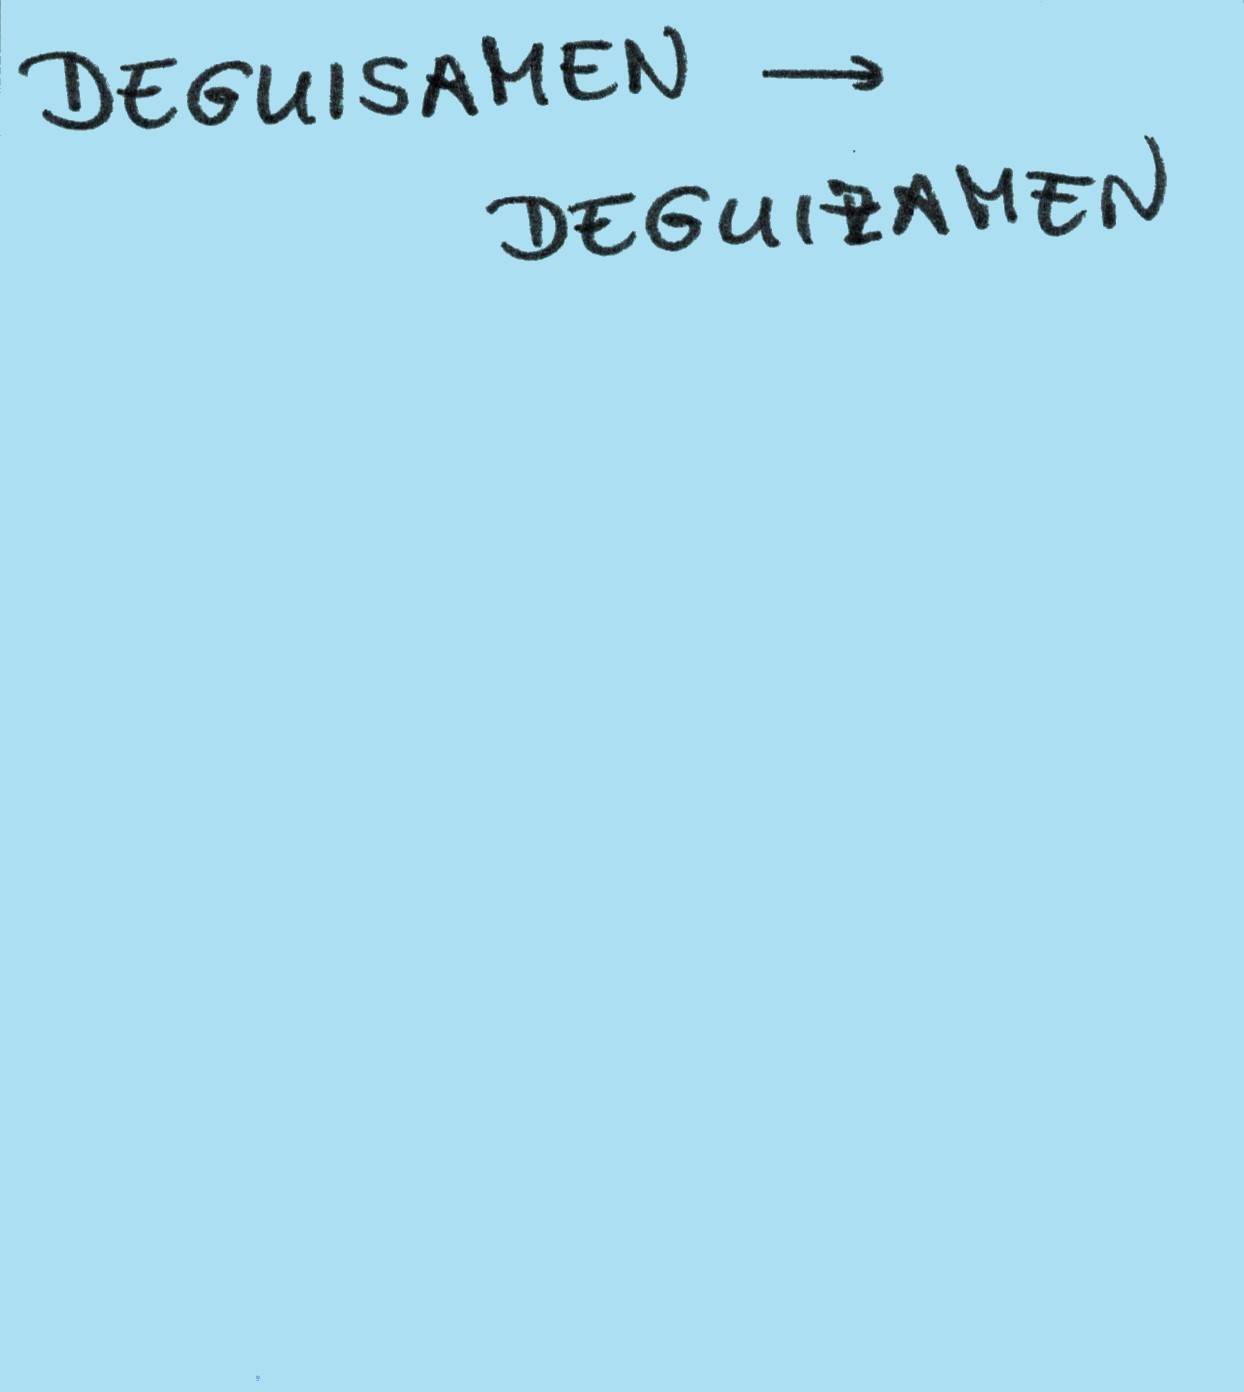 DEGUISAMEN →
DEGUIZAMEN